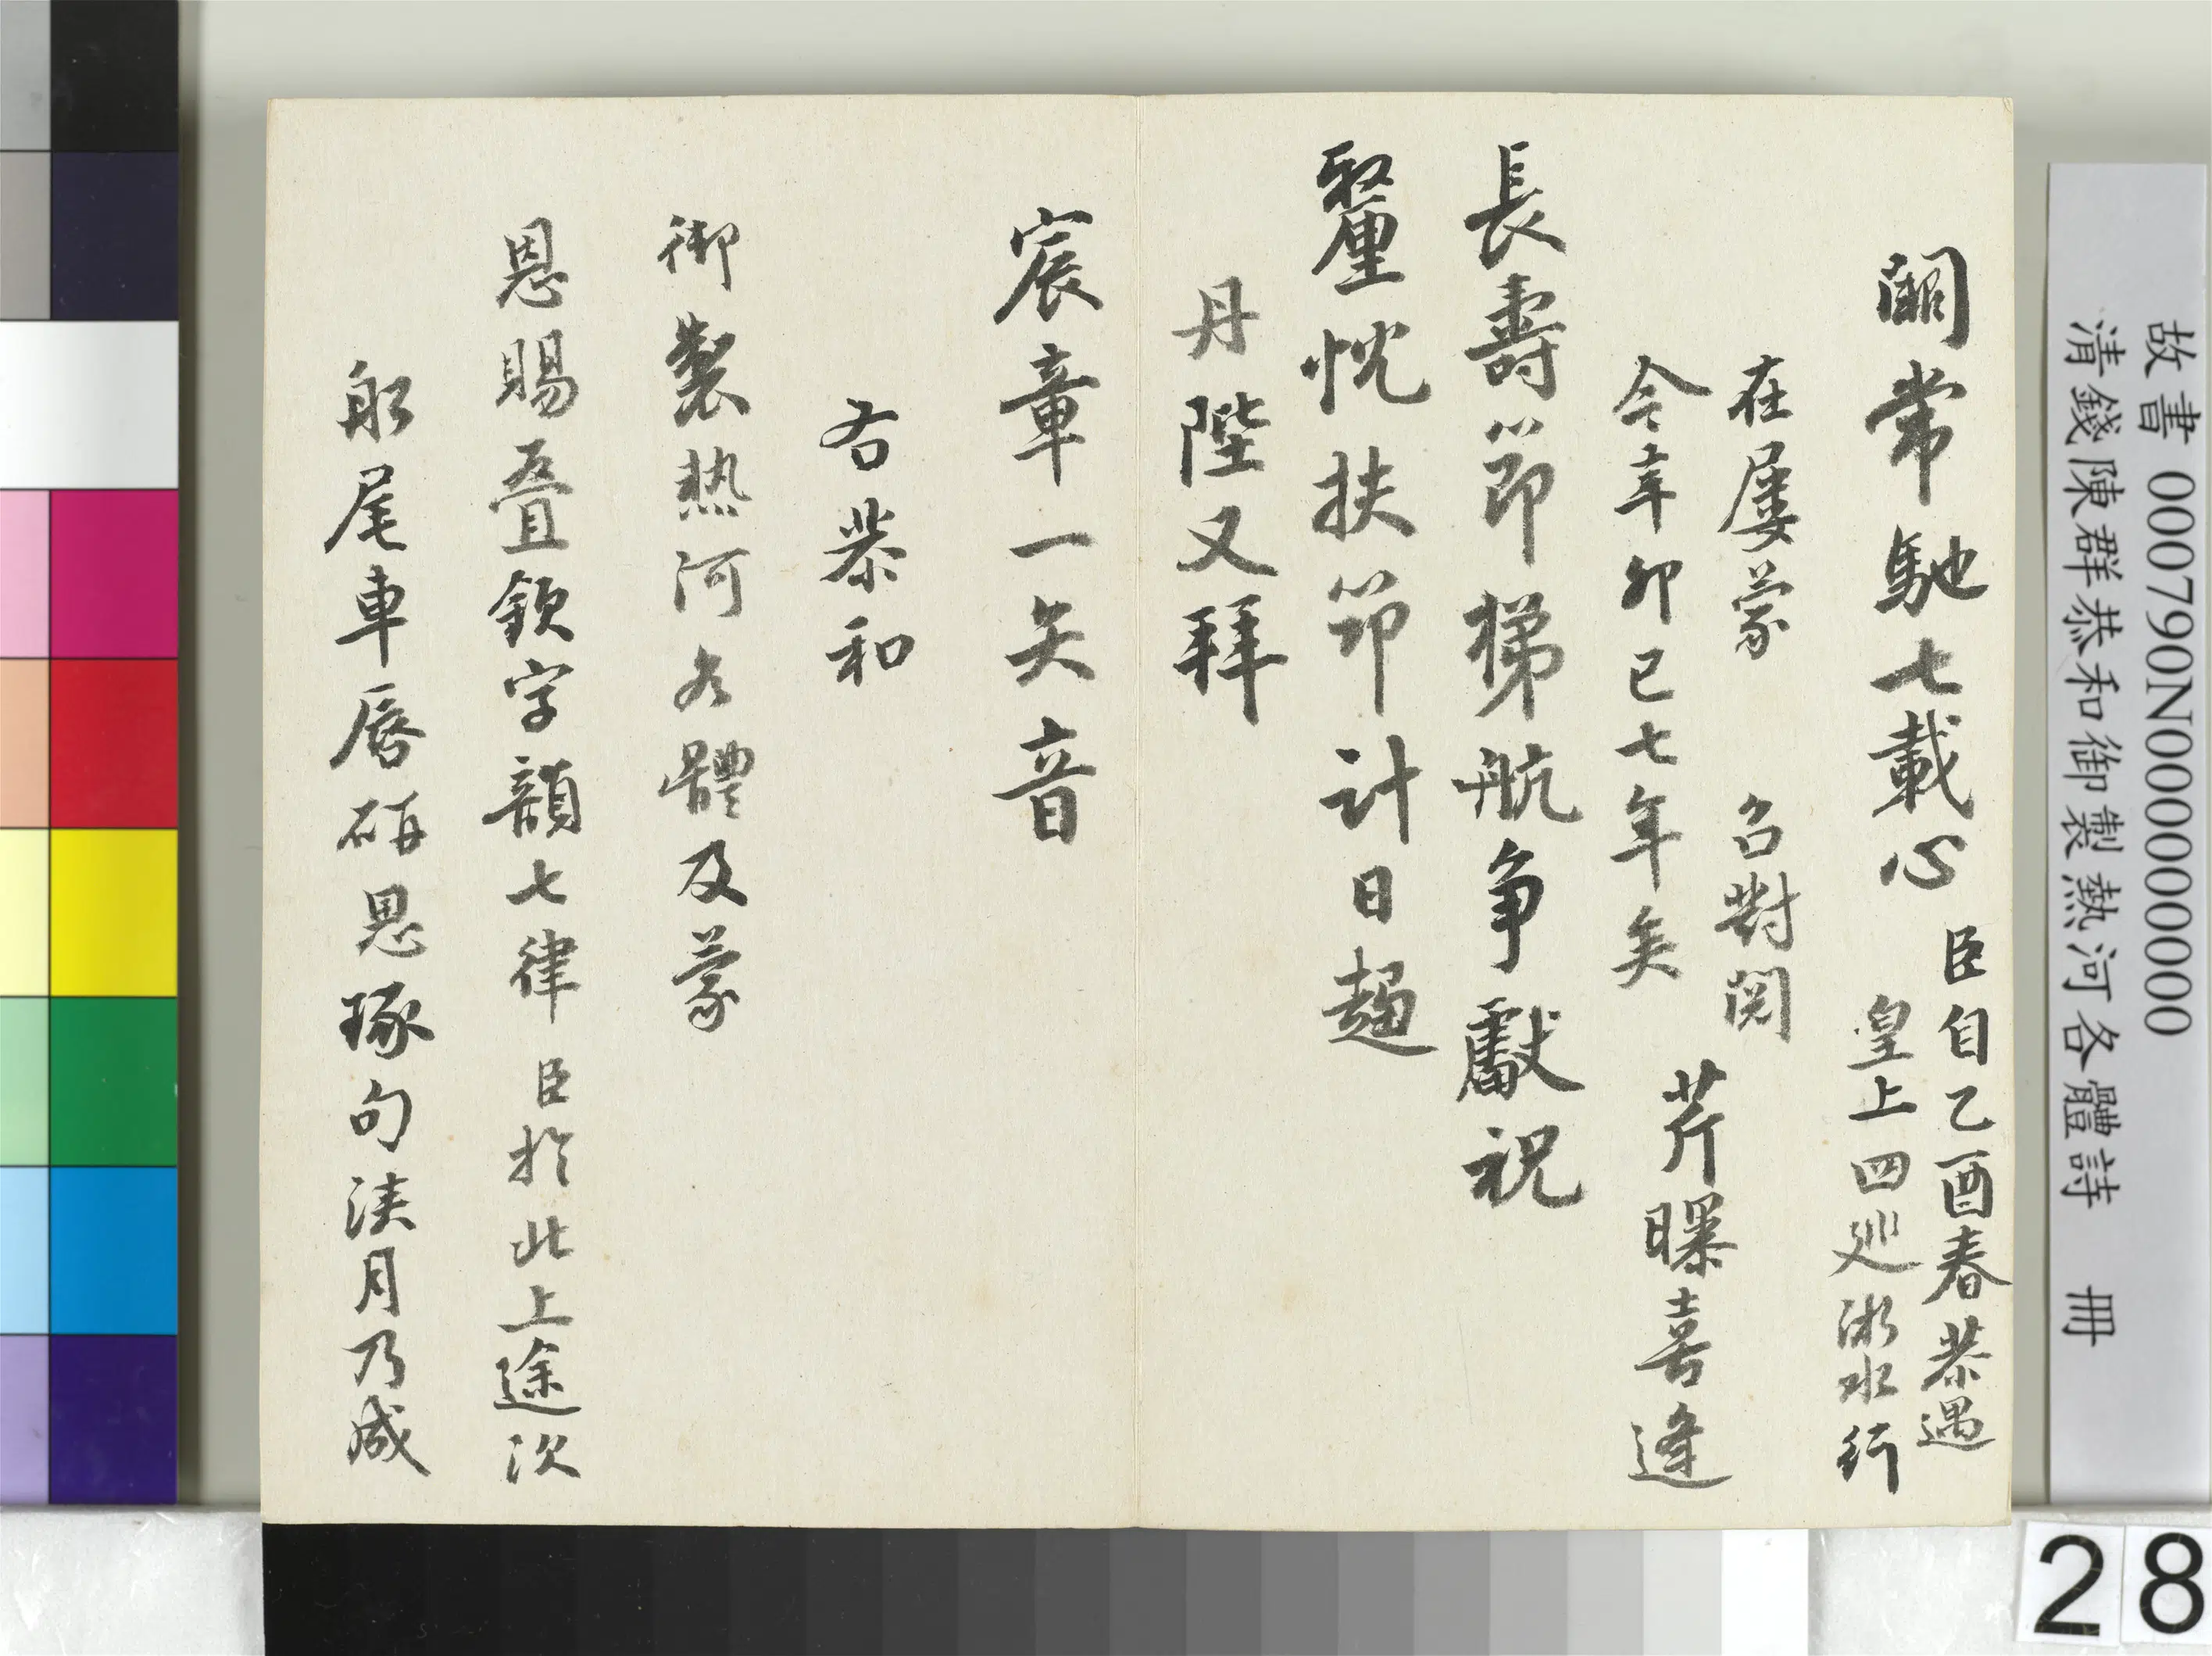 故書 000790N000000000
清錢陳群恭和御製熱河各體詩 冊
闕常馳七載心 臣自乙酉春恭遇
皇上四巡淛水行
在屢蒙 召對閱
今辛卯已七年矣
芹曝喜逢
長壽節梯航爭獻祝
釐怳扶節計日趨
丹陛又拜
宸章一矢音
右恭和
御製熱河各體及蒙
恩賜叠欽字韻七律臣於此上途次
船尾車唇研思琢句浹月乃成
28